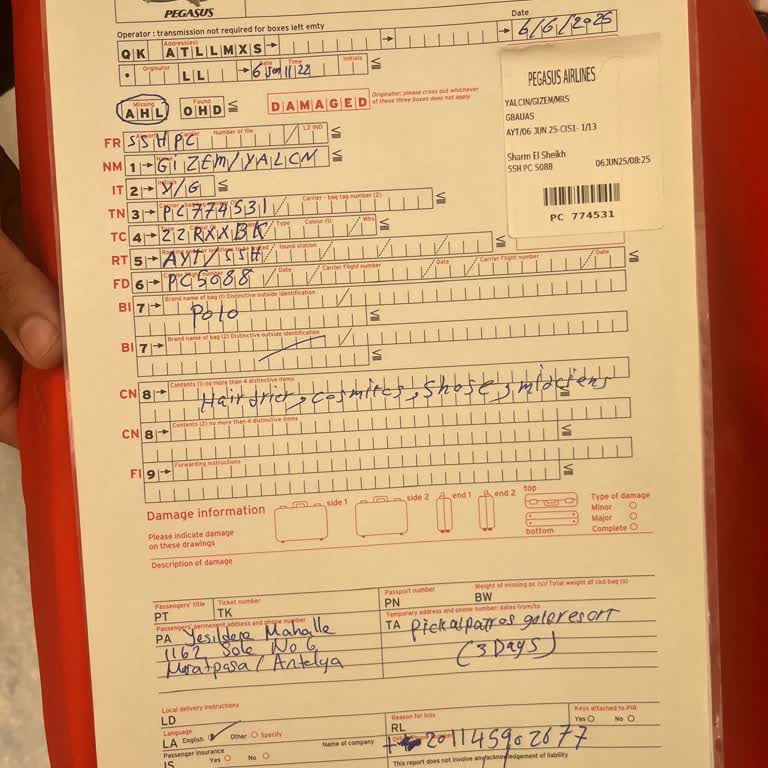 PEGASUS
Operator : transmission not required for boxes left emty
Date
6/6/2025
Address(es)
QK ATLLMXS
Orginator Date Time Initials
LL 6 Jun 11 22
Missing Found
AHL OHD DAMAGED
Originator: please cross out whichever
of these three boxes does not apply
PEGASUS AIRLINES
YALCIN/GIZEM/MRS
GBAUAS
AYT/06 JUN 25-CIS1- 1/13
Sharm El Sheikh
SSH PC 5088 06JUN25/08:25
PC 774531
Number of file LZ IND
FR SSHPC
NM 1 GIZEM/YALCN
IT 2 Y/G
Carrier - bag tag number (2)
TN 3 PC774531
Type Colour (1) Whs
TC 4 22RXXBK
found station
RT 5 AYT/SSH
Date Carrier Flight number Date Carrier Flight number Date
FD 6 PC5088
Brand name of bag (1) Distinctive outside identification
BI 7
Polo
Brand name of bag (2) Distinctive outside identification
BI 7
Contents (1) no more than 4 distinctive items
CN 8 Hair drier, cosmitcs, shose,
Contents (2) no more than 4 distinctive items
CN 8
Forwarding instructions
FI 9
Damage information
side 1 side 2 end 1 end 2 top
bottom
Type of damage
Minor
Major
Complete
Please indicate damage
on these drawings
Description of damage
Passengers' title Ticket number Passport number Weight of missing pc (s)/ Total weight of ckd bag (s)
PT TK PN BW
Passengers' permanent address and phone number
PA Yesildere Mahalle
1162 Sole No 6
Muratpasa / Antelya
Temporary address and phone number: dates from/to
TA
(3 Days)
Local delivery instructions
LD
Language
LA English Other Specify
Passenger insurance
IS Yes No Name of company
Reason for loss Keys attached to PIR
RL Yes No
This report does not involve any acknowledgement of liability